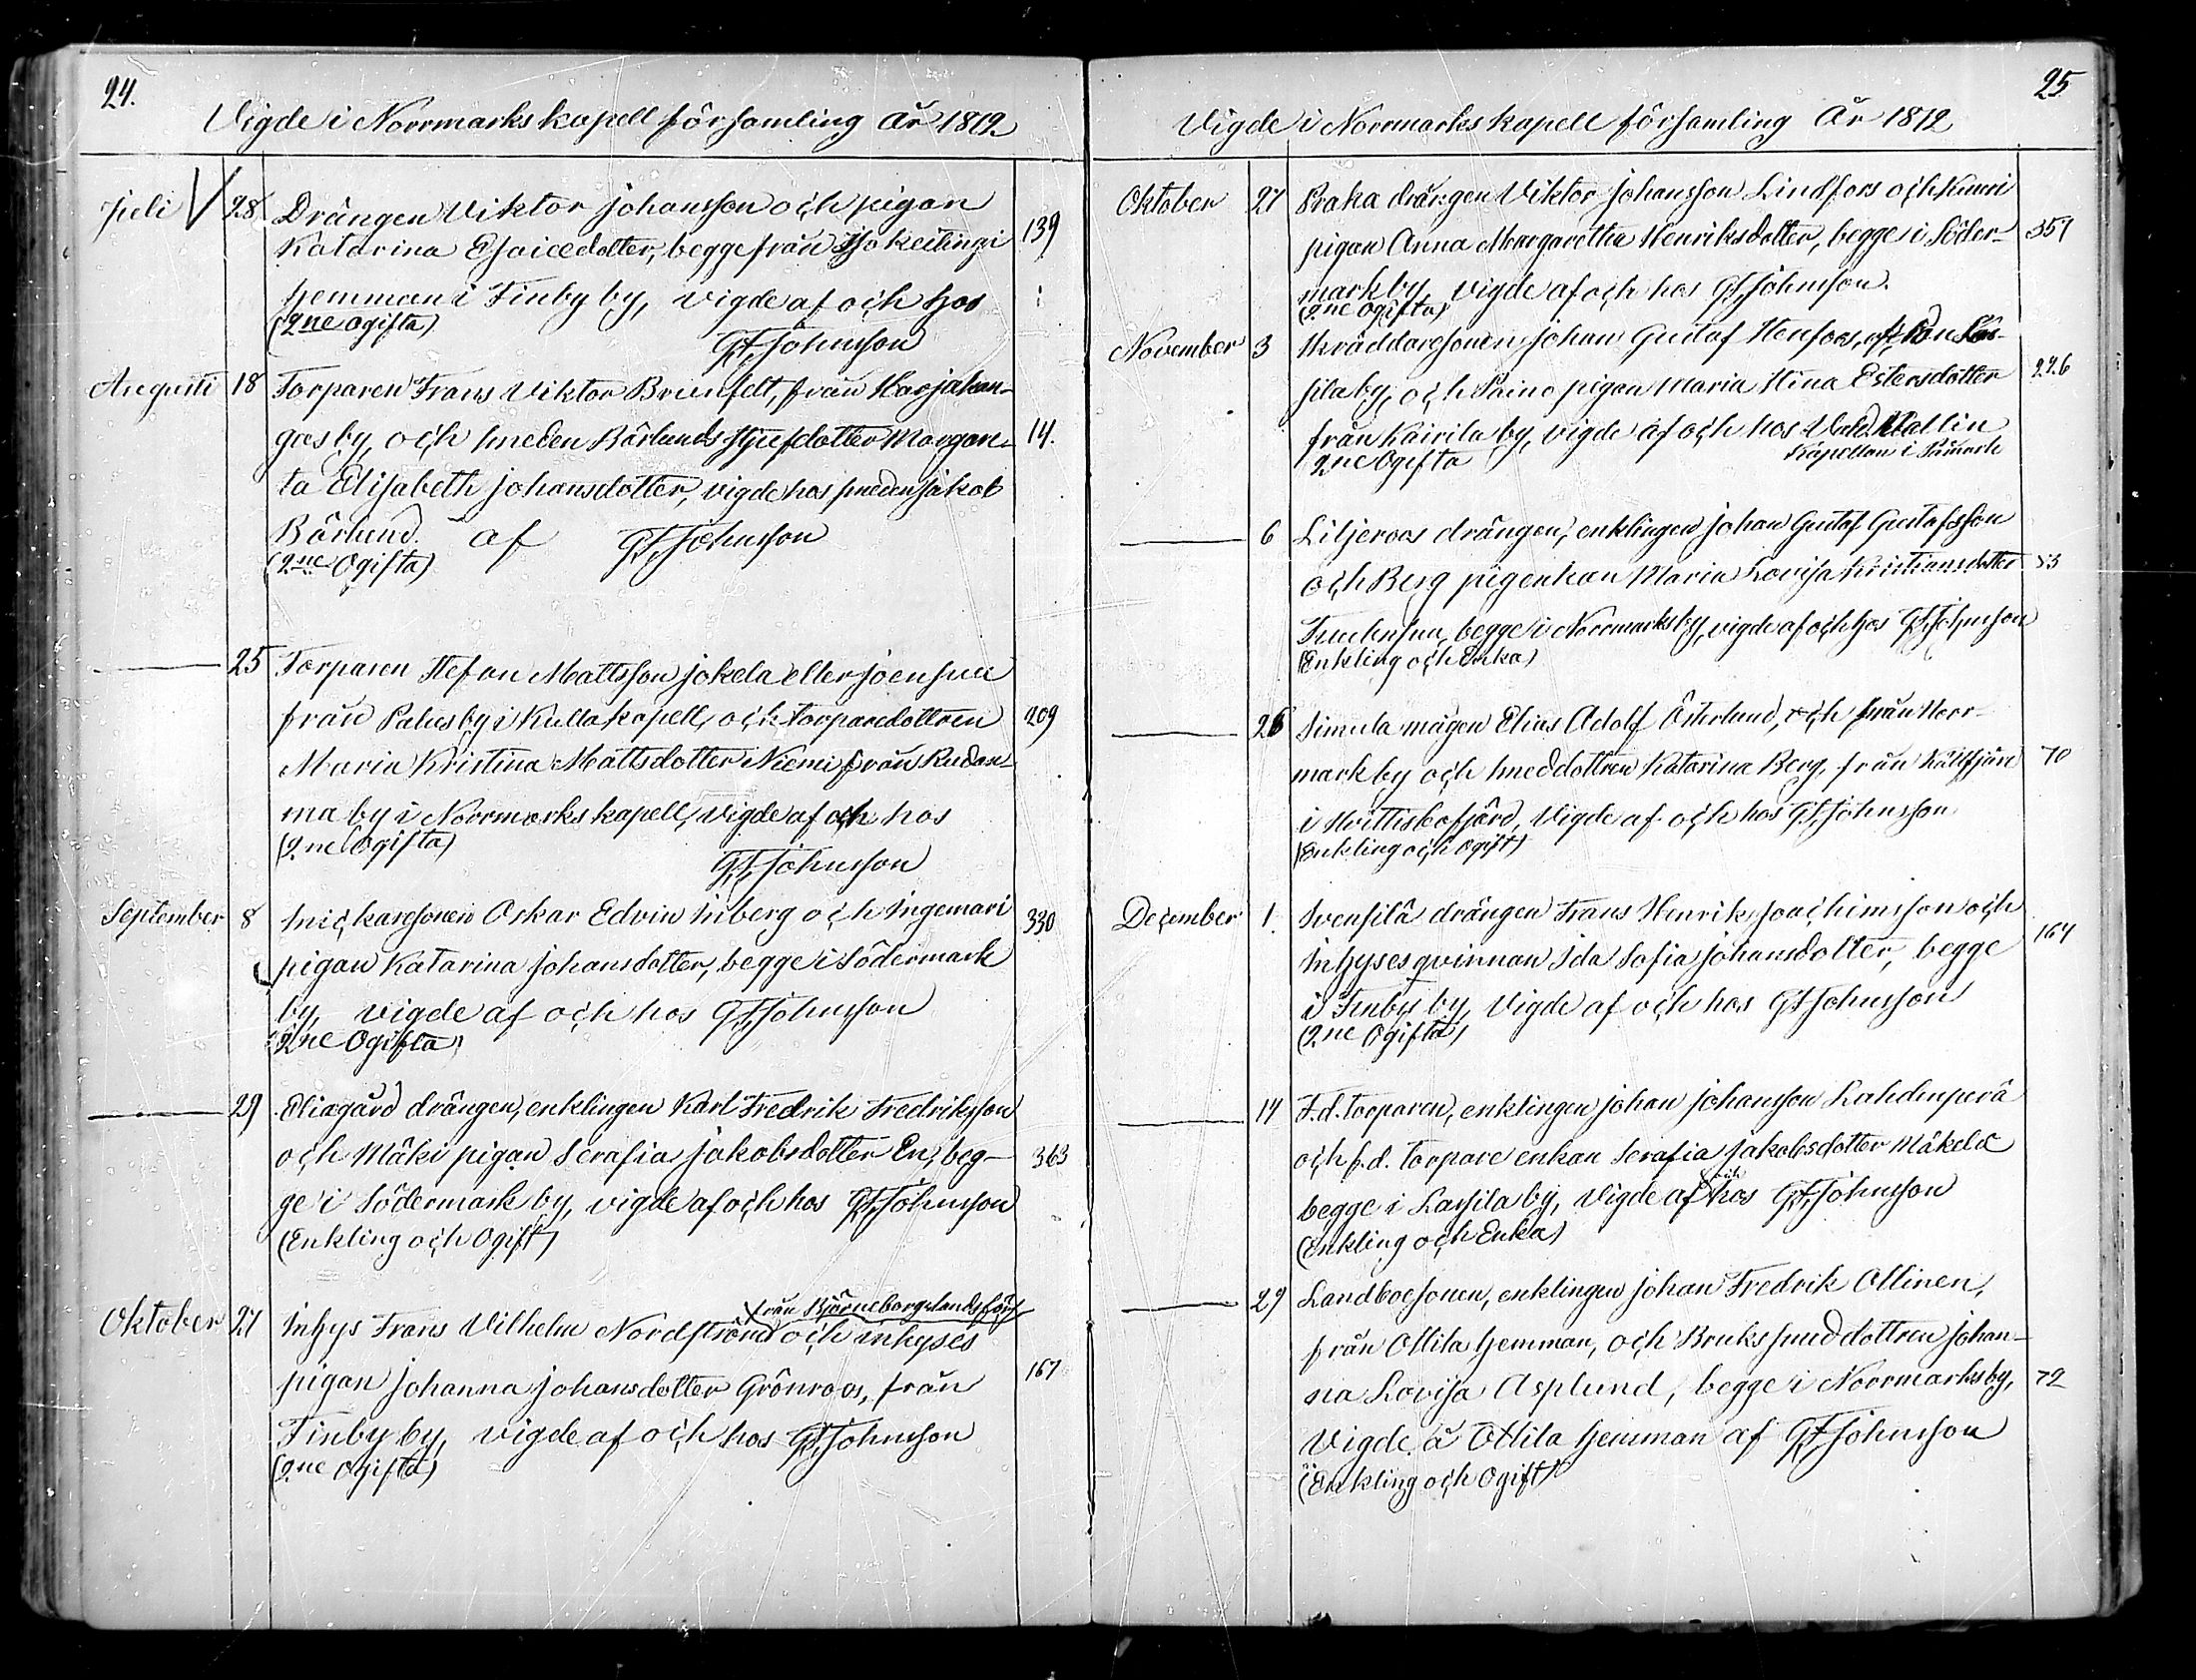 24.
Vigde i Norrmarks kapell församling År 1872
Juli 28 Drängen Viktor Johansson och pigan
Katarina Esaiedotter, begge från Isokeilingi 139
hemman i Finby by, vigde af och hos
(2ne ogifta)
G.F. Johnsson
Augusti 18 Torparen Frans Viktor Brunfelt, från Harjakan-
gas by, och smeden Bärlunds styfdotter Margare- 14.
ta Elisabeth Johansdotter, vigde hos smeden Jakob
Bärlund. af G.F. Johnsson
(2ne Ogifta)
25 Torparen Stefan Mattsson Jokela eller Joensuu
från Palus by i Kulla kapell, och torparedottren 209
Maria Kristina Mattsdotter Niemi från Rudan-
ma by i Norrmarks kapell, vigde af och hos
(2ne Ogifta)
G.F. Johnsson
September 8 Snickaresonen Oskar Edvin Inberg och Ingemari 330
pigan Katarina Johansdotter, begge i Södermark
by, vigde af och hos G.F. Johnsson
(2ne Ogifta)
29 Eliægård drängen, enklingen Karl Fredrik Fredriksson
och Mäki pigan Serafia Jakobsdotter En, beg- 363
ge i Södermark by, vigde af och hos G.F. Johnsson
(Enkling och Ogift)
från Björneborgs landsförs
Oktober 27 Inhys Frans Vilhelm Nordström och inhyses
pigan Johanna Johansdotter Grönroos, från 167
Finby by, vigde af och hos G.F. Johnsson
(2ne Ogifta)
25
Vigde i Norrmarks kapell församling År 1872
Oktober 27 Raka drängen Viktor Johansson Lindfors och Knuri
pigan Anna Margaretha Henriksdotter, begge i Söder- 357
mark by, vigde af och hos G.F. Johnsson.
(2ne Ogifta)
November 3 Skräddaresonen Johan Gustaf Stenfors, från Las-
sila by, och Paino pigan Maria Stina Estersdotter 226
från Kairila by, vigde af och hos Wallin
2ne Ogifta Kapellan i Påmark
6 Liljeroos drängen, enklingen Johan Gustaf Gustafsson
och Berg pigenkan Maria Lovisa Kristiansdotter 53
begge i Norrmarks by, vigde af och hos G.F. Johnsson
(Enkling och Enka)
26 Simula mågen Elias Adolf Österlund, och från Norr-
mark by och smeddottren Katarina Berg, från Källfjärd 70
i Hvittisbofjärd, Vigde af och hos G.F. Johnsson
(Enkling och ogift)
December 1. Svensilä drängen Frans Henrik Joachimsson och
Inhyses qvinnan Ida Sofia Johansdotter, begge 164
i Finby by, Vigde af och hos G.F. Johnsson
(2ne Ogifta)
17 F.d. torparen, enklingen Johan Johansson Lahdenperä
och f.d. torpare enkan Serafia Jakobsdotter Mäkelä
begge i Lassila by, Vigde af och hos G.F. Johnsson
(Enkling och Enka)
29 Landboesonen, enklingen Johan Fredrik Ollinen,
från Ollila hemman, och Bruks smeddottren Johan-
na Lovisa Asplund, begge i Norrmarks by, 72
Vigde å Ollila hemman af G.F. Johnsson
(Enkling och Ogift)